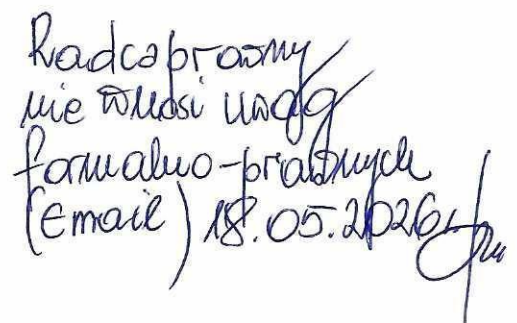 Radca prawny
nie wnosi uwag
formalno-prawnych
(Email) 18.05.2026r